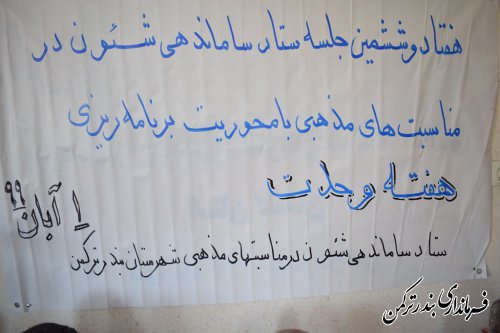 هفتاد و ششمین جلسه ستاد ساماندهی شئون در
مناسبت های مذهبی با محوریت برنامه ریزی
هفته وحدت
۱ آبان ۹۹
ستاد ساماندهی شئون در مناسبتهای مذهبی شهرستان بندرترکمن
فرمانداری بندرترکمن